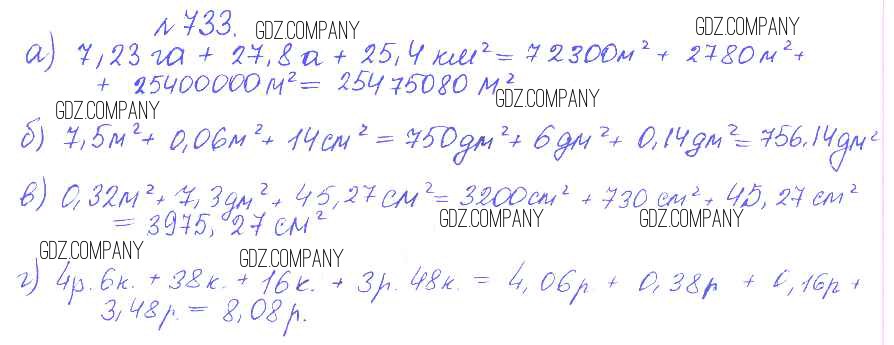 №733. GDZ.COMPANY GDZ.COMPANY
а) 7,23 га + 27,8 а + 25,4 км² = 72300м² + 2780м² +
+ 25400000м² = 25475080 м²
GDZ.COMPANY GDZ.COMPANY
б) 7,5м² + 0,06м² + 14см² = 750дм² + 6дм² + 0,14дм² = 756,14дм²
в) 0,32м² + 7,3дм² + 45,27см² = 3200см² + 730см² + 45,27см²
= 3975,27см² GDZ.COMPANY GDZ.COMPANY
GDZ.COMPANY GDZ.COMPANY
г) 4р.6к. + 38к. + 16к. + 3р.48к. = 4,06р + 0,38р + 0,16р +
3,48р. = 8,08р.